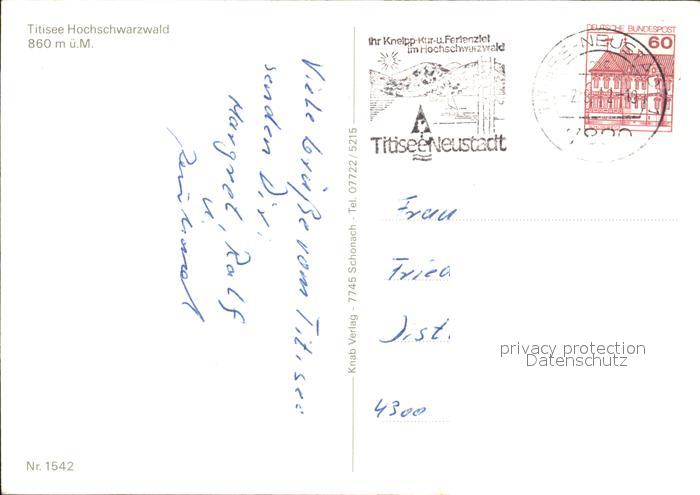 Titisee Hochschwarzwald
860 m ü.M.
Viele Grüße vom Titisee
senden Dir
Margret, Ralf
u.
Knab Verlag - 7745 Schonach - Tel. 07722 / 5215
Nr. 1542
Ihr Kneipp-Kur-u.Ferienziel
im Hochschwarzwald
Titisee-Neustadt
DEUTSCHE BUNDESPOST
60
Frau
Fried
4300
privacy protection
Datenschutz